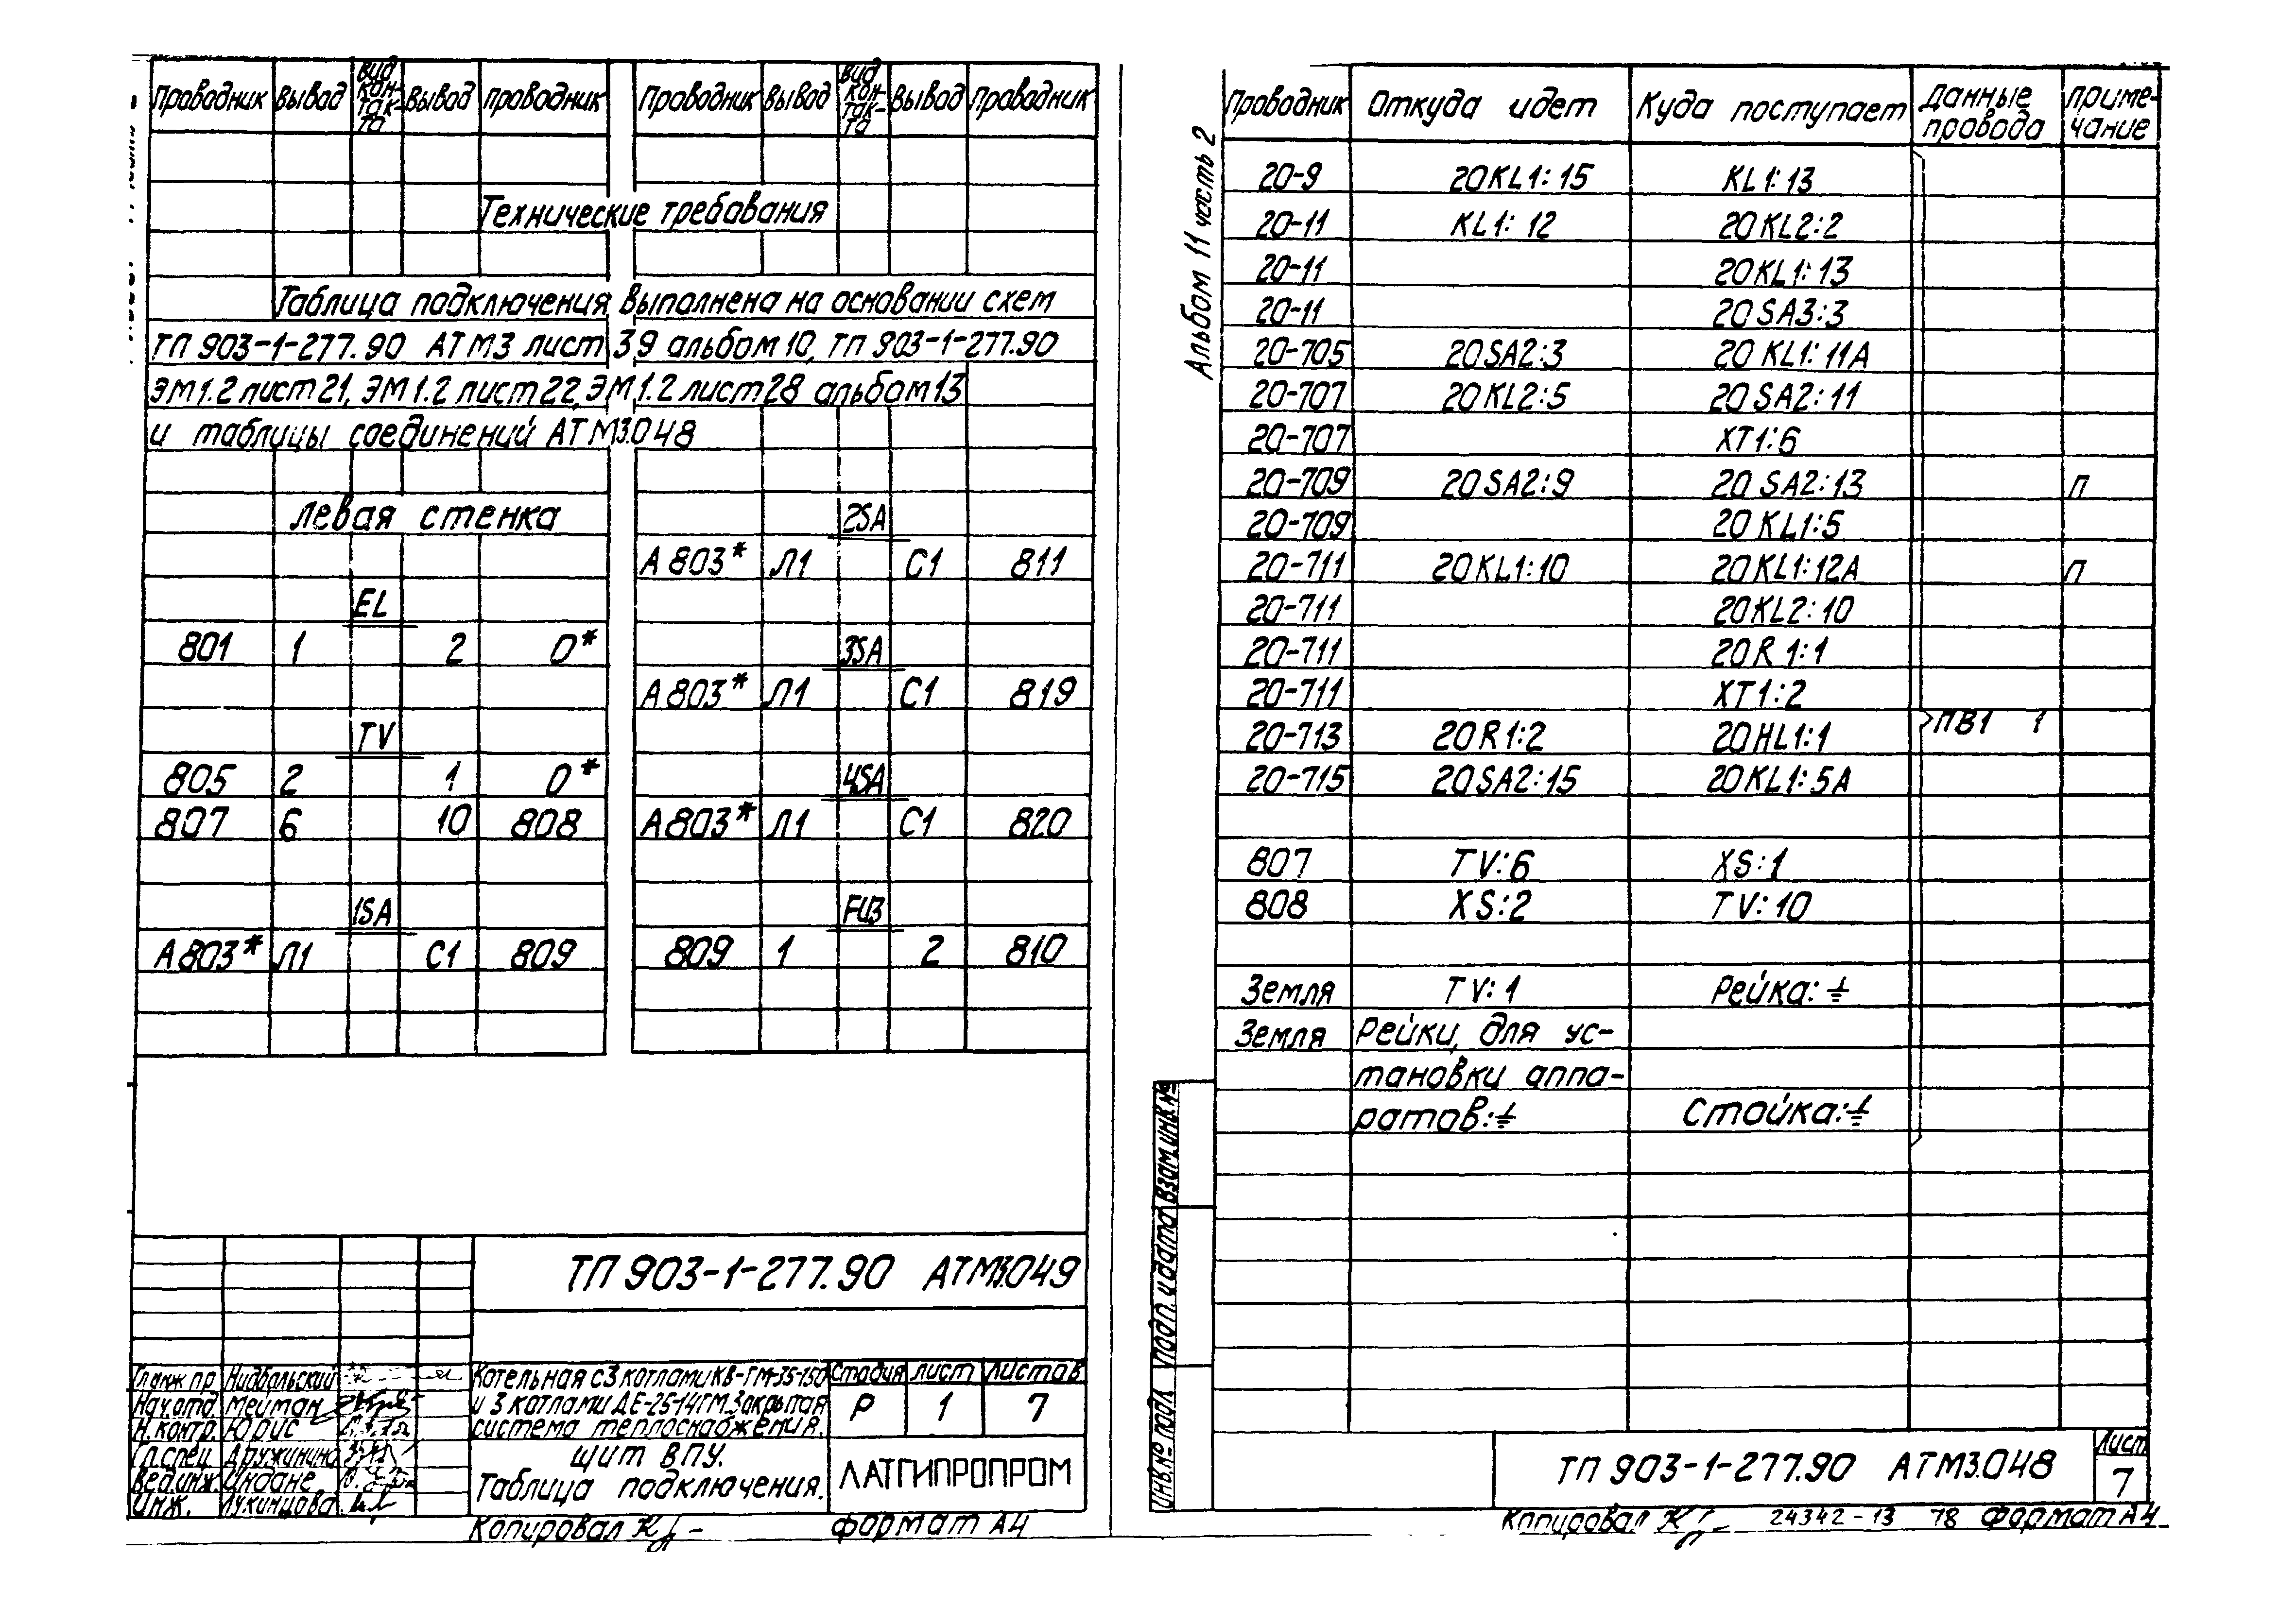 Проводник Вывод Вид кон-так-та Вывод Проводник Проводник Вывод Вид кон-так-та Вывод Проводник
Технические требования
Таблица подключения выполнена на основании схем
ТП 903-1-277.90 АТМ3 лист 39 альбом 10, ТП 903-1-277.90
ЭМ1.2 лист 21, ЭМ1.2 лист 22, ЭМ1.2 лист 28 альбом 13
и таблицы соединений АТМ3.048
Левая стенка
EL
801 1 2 0*
TV
805 2 1 0*
807 6 10 808
1SA
А803* Л1 С1 809
2SA
А803* Л1 С1 811
3SA
А803* Л1 С1 819
4SA
А803* Л1 С1 820
FU3
809 1 2 810
ТП 903-1-277.90 АТМ3.049
Гл.инж.пр. Нидбальский
Нач.отд. Мейтан
Н.контр. Юрис
Гл.спец. Дружинина
Вед.инж. Индане
Инж. Лукинцова
Котельная с 3 котлами КВ-ГМ-35-150
и 3 котлами ДЕ-25-14ГМ. Закрытая
система теплоснабжения.
Щит ВПУ.
Таблица подключения.
Стадия Лист Листов
Р 1 7
ЛАТГИПРОПРОМ
Копировал
Формат А4
Альбом 11 часть 2
Проводник Откуда идет Куда поступает Данные провода Приме-чание
20-9 20KL1:15 KL1:13
20-11 KL1:12 20KL2:2
20-11 20KL1:13
20-11 20SA3:3
20-705 20SA2:3 20KL1:11A
20-707 20KL2:5 20SA2:11
20-707 XT1:6
20-709 20SA2:9 20SA2:13 П
20-709 20KL1:5
20-711 20KL1:10 20KL1:12A П
20-711 20KL2:10
20-711 20R1:1
20-711 XT1:2
20-713 20R1:2 20HL1:1 ПВ1 1
20-715 20SA2:15 20KL1:5A
807 TV:6 XS:1
808 XS:2 TV:10
Земля TV:1 Рейка:⏚
Земля Рейки, для ус-
тановки аппа-
ратов:⏚ Стойка:⏚
Инв.№ подл. Подп. и дата Взам.инв.№
ТП 903-1-277.90 АТМ3.048
Лист
7
Копировал 24342-13 78 Формат А4